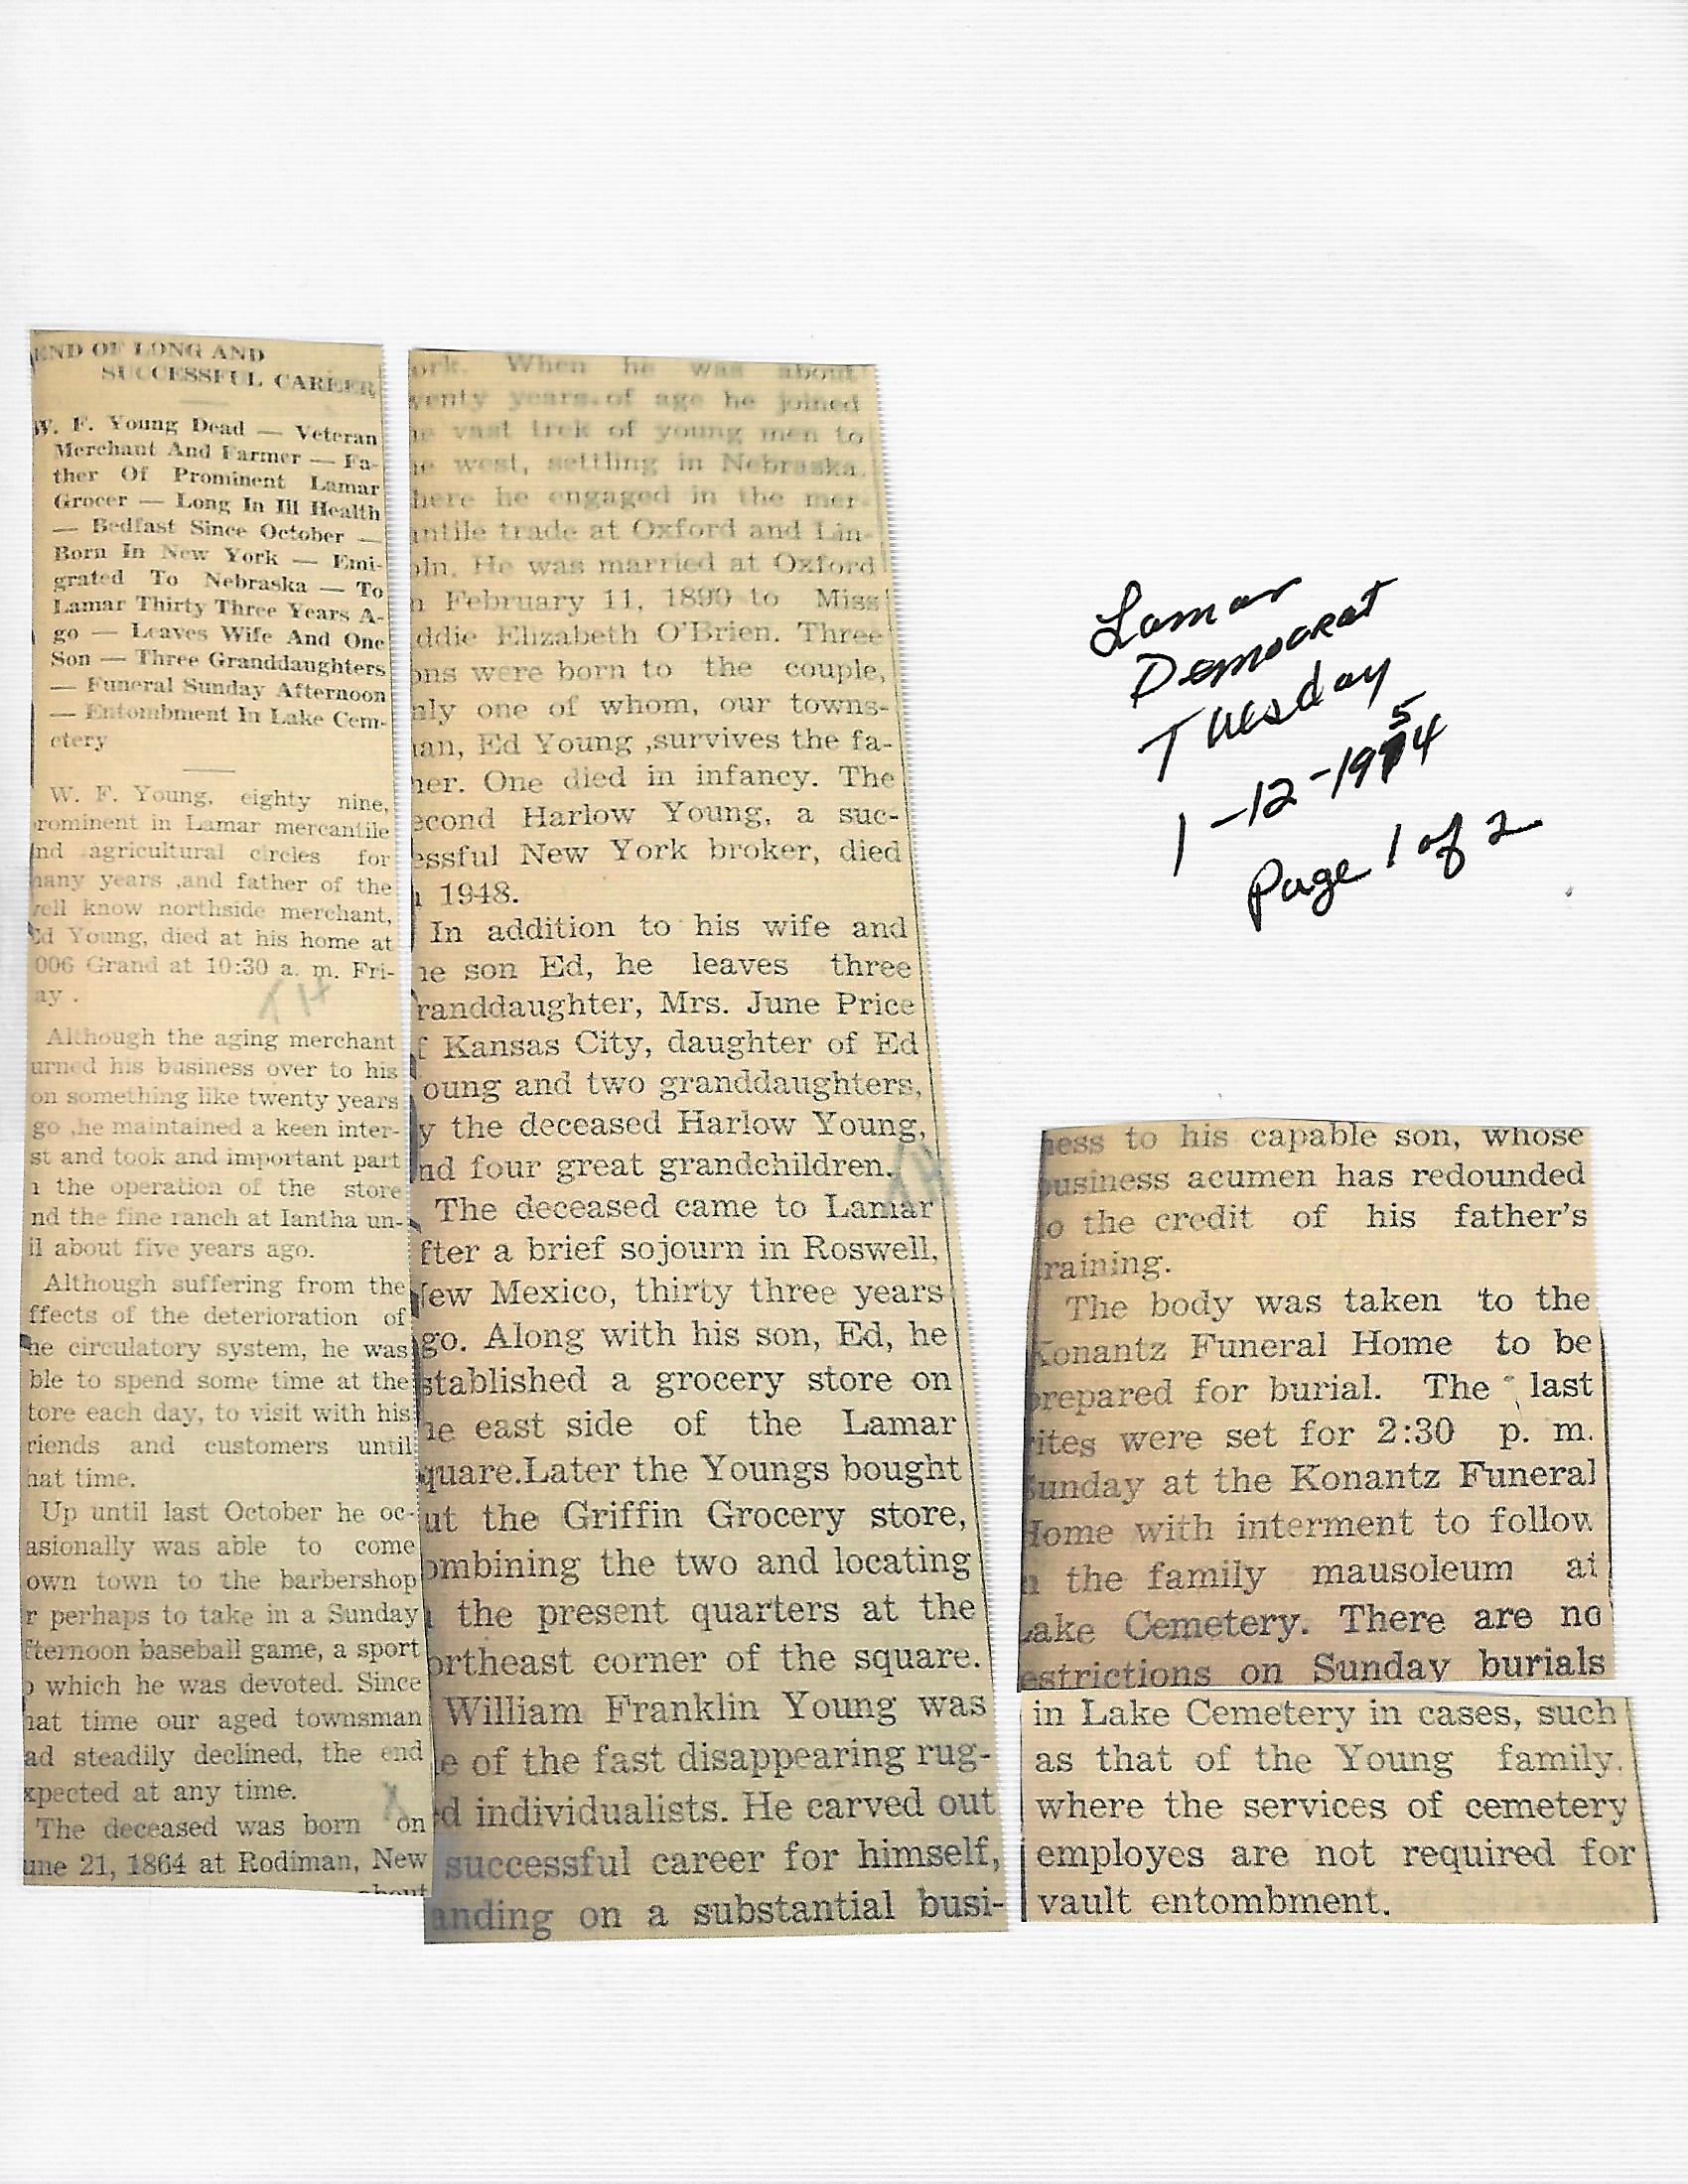 END OF LONG AND
SUCCESSFUL CAREER
W. F. Young Dead — Veteran
Merchant And Farmer — Fa-
ther Of Prominent Lamar
Grocer — Long In Ill Health
— Bedfast Since October —
Born In New York — Emi-
grated To Nebraska — To
Lamar Thirty Three Years A-
go — Leaves Wife And One
Son — Three Granddaughters
— Funeral Sunday Afternoon
— Entombment In Lake Cem-
etery
W. F. Young, eighty nine,
rominent in Lamar mercantile
nd agricultural circles for
many years ,and father of the
well know northside merchant,
Ed Young, died at his home at
006 Grand at 10:30 a. m. Fri-
ay .
TH
Although the aging merchant
urned his business over to his
on something like twenty years
go ,he maintained a keen inter-
st and took and important part
n the operation of the store
nd the fine ranch at Iantha un-
il about five years ago.
Although suffering from the
ffects of the deterioration of
he circulatory system, he was
ble to spend some time at the
tore each day, to visit with his
riends and customers until
hat time.
Up until last October he oc-
asionally was able to come
own town to the barbershop
r perhaps to take in a Sunday
fternoon baseball game, a sport
o which he was devoted. Since
hat time our aged townsman
ad steadily declined, the end
xpected at any time.
The deceased was born on
une 21, 1864 at Rodiman, New
about
ork. When he was about
wenty years.of age he joined
he vast trek of young men to
he west, settling in Nebraska.
here he engaged in the mer-
antile trade at Oxford and Lin-
oln. He was married at Oxford
n February 11, 1890 to Miss
ddie Elizabeth O'Brien. Three
ons were born to the couple,
nly one of whom, our towns-
man, Ed Young ,survives the fa-
her. One died in infancy. The
econd Harlow Young, a suc-
essful New York broker, died
n 1948.
In addition to his wife and
ne son Ed, he leaves three
randdaughter, Mrs. June Price
f Kansas City, daughter of Ed
oung and two granddaughters,
y the deceased Harlow Young,
nd four great grandchildren.
TH
The deceased came to Lamar
fter a brief sojourn in Roswell,
New Mexico, thirty three years
go. Along with his son, Ed, he
stablished a grocery store on
he east side of the Lamar
quare.Later the Youngs bought
ut the Griffin Grocery store,
ombining the two and locating
n the present quarters at the
ortheast corner of the square.
William Franklin Young was
e of the fast disappearing rug-
ed individualists. He carved out
successful career for himself,
anding on a substantial busi-
Lamar
Democrat
Tuesday
1-12-1954
Page 1 of 2
ness to his capable son, whose
business acumen has redounded
to the credit of his father's
training.
The body was taken to the
Konantz Funeral Home to be
prepared for burial. The last
rites were set for 2:30 p. m.
Sunday at the Konantz Funeral
Home with interment to follow
n the family mausoleum at
Lake Cemetery. There are no
estrictions on Sunday burials
in Lake Cemetery in cases, such
as that of the Young family,
where the services of cemetery
employes are not required for
vault entombment.